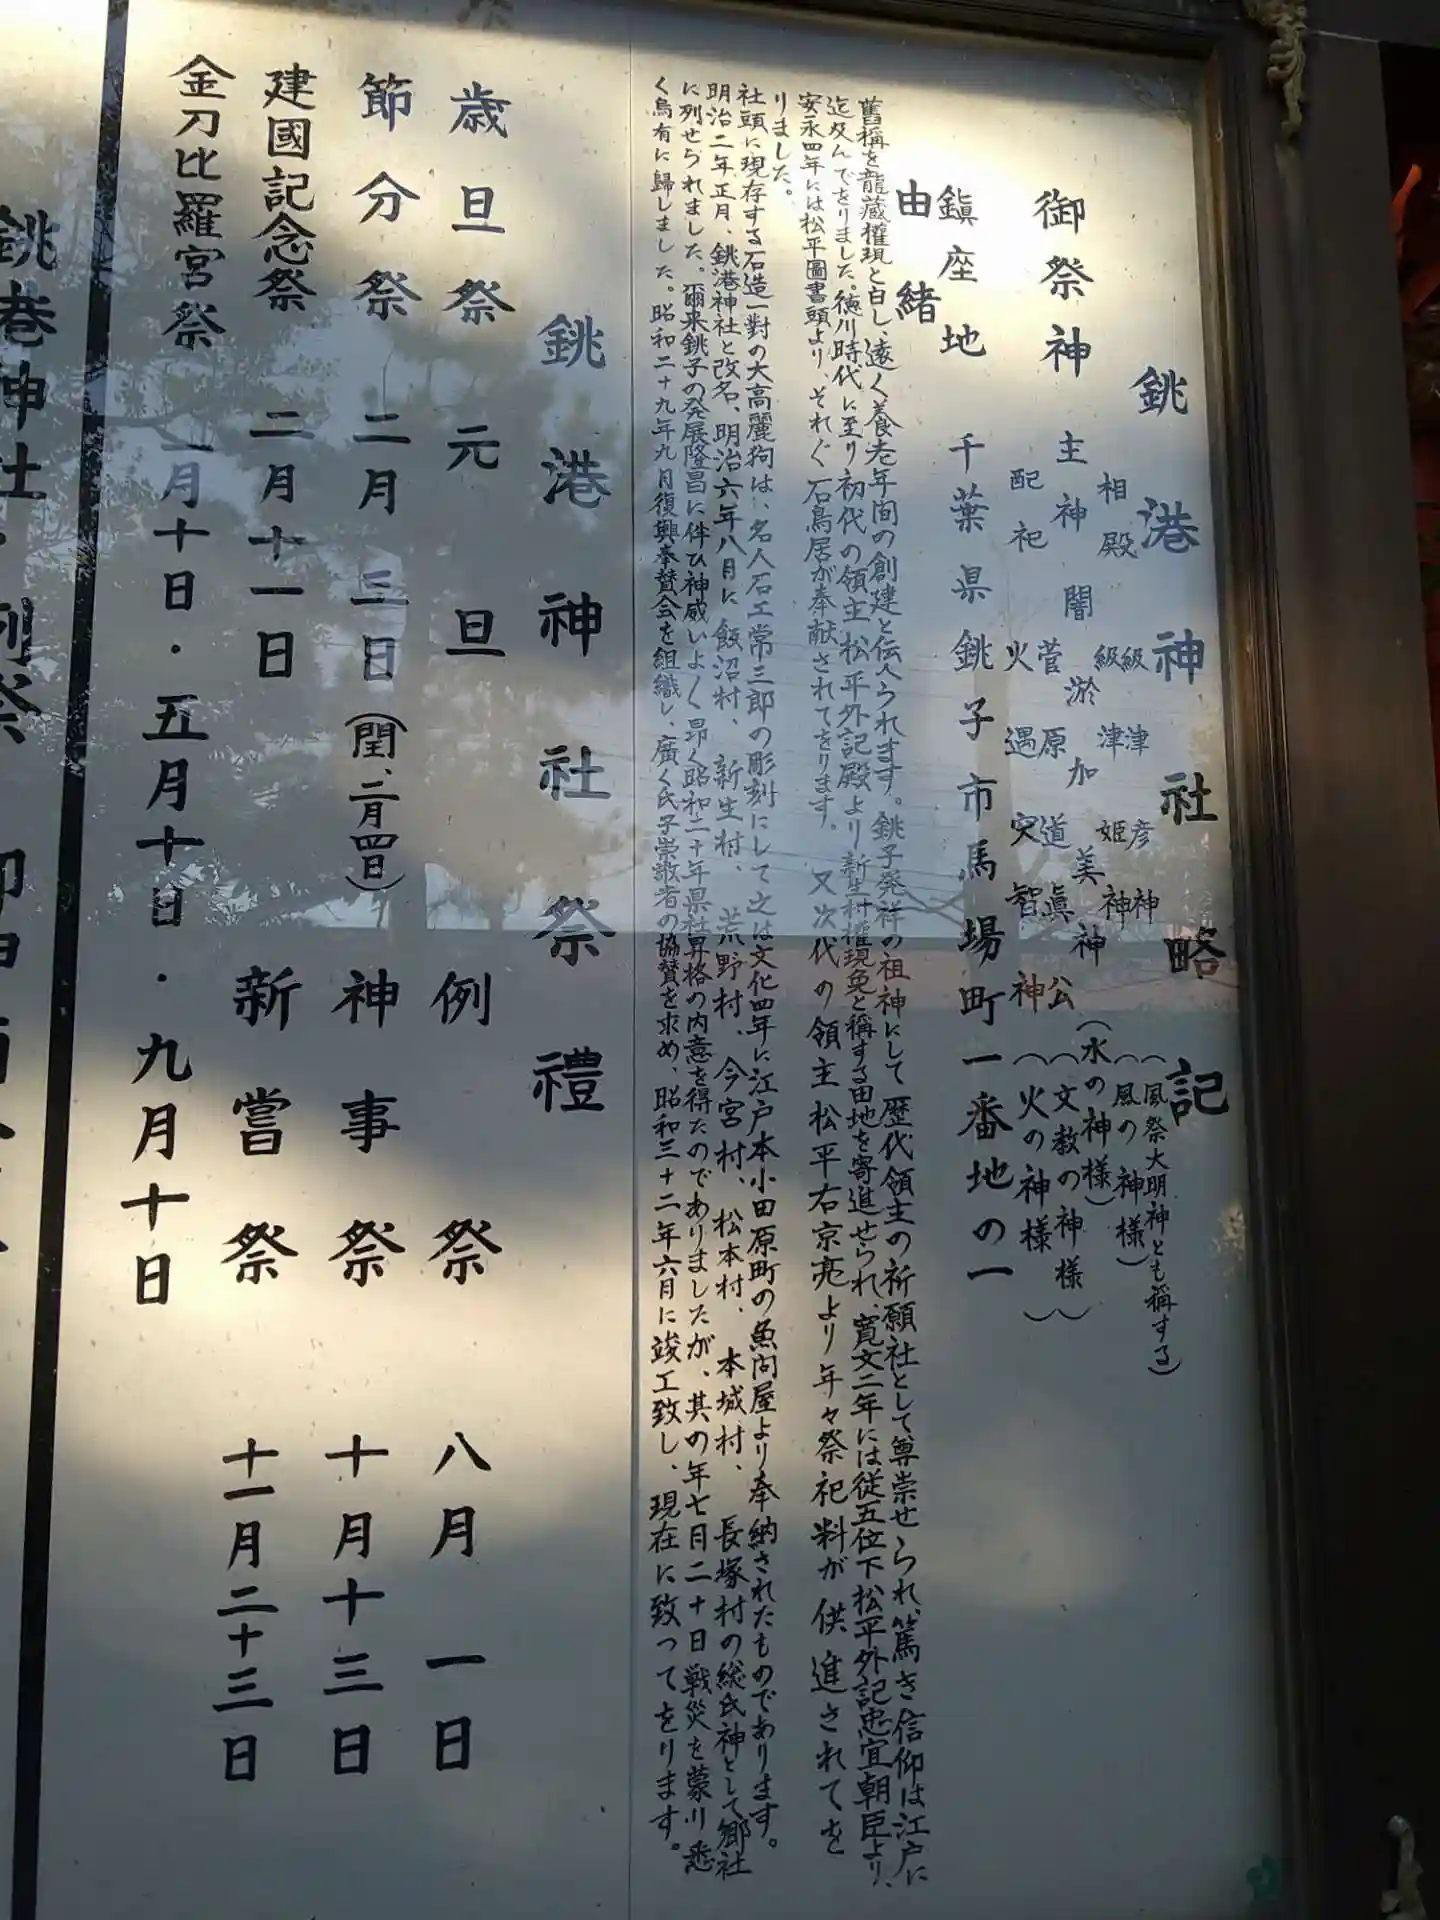 銚港神社略記
御祭神
相殿 級津彦神(風祭大明神とも稱する)
級津姫神(風の神様)
主神 闇淤加美神(水の神様)
配祀 菅原道眞公(文教の神様)
火遇突智神(火の神様)
鎭座地 千葉県銚子市馬場町一番地の一
由緒
舊稱を龍蔵權現と白し、遠く養老年间の創建と伝へられます。銚子発祥の祖神にして歴代領主の祈願社として尊崇せられ、篤き信仰は江戸に
迄及んでをりました。徳川時代に至り初代の領主松平外記殿より新生村權現免と稱する田地を寄進せられ、寛文二年には従五位下松平外記忠宜朝臣より、
安永四年には松平圖書頭より、それぐ石鳥居が奉献されてをります。又次代の領主松平右京亮より年々祭祀料が供進されてを
りました。
社頭に現存する石造一對の大高麗狗は、名人石工常三郎の彫刻にして之は文化四年に江戸本小田原町の魚问屋より奉納されたものであります。
明治二年正月、銚港神社と改名、明治六年八月に飯沼村、新生村、荒野村、今宮村、松本村、本城村、長塚村の総氏神として郷社
に列せられました。爾来銚子の発展隆昌に伴ひ神威いよく昻く昭和二十年県社昇格の内意を得たのでありましたが、其の年七月二十日戦災を蒙り悉
く烏有に歸しました。昭和二十九年九月復興奉賛会を組織し、廣く氏子崇敬者の協賛を求め、昭和三十二年六月に竣工致し、現在に致つてをります。
銚港神社祭禮
歳旦祭 元旦 例祭 八月一日
節分祭 二月三日(閏、二月四日) 神事祭 十月十三日
建國記念祭 二月十一日 新嘗祭 十一月二十三日
金刀比羅宮祭 一月十日・五月十日・九月十日